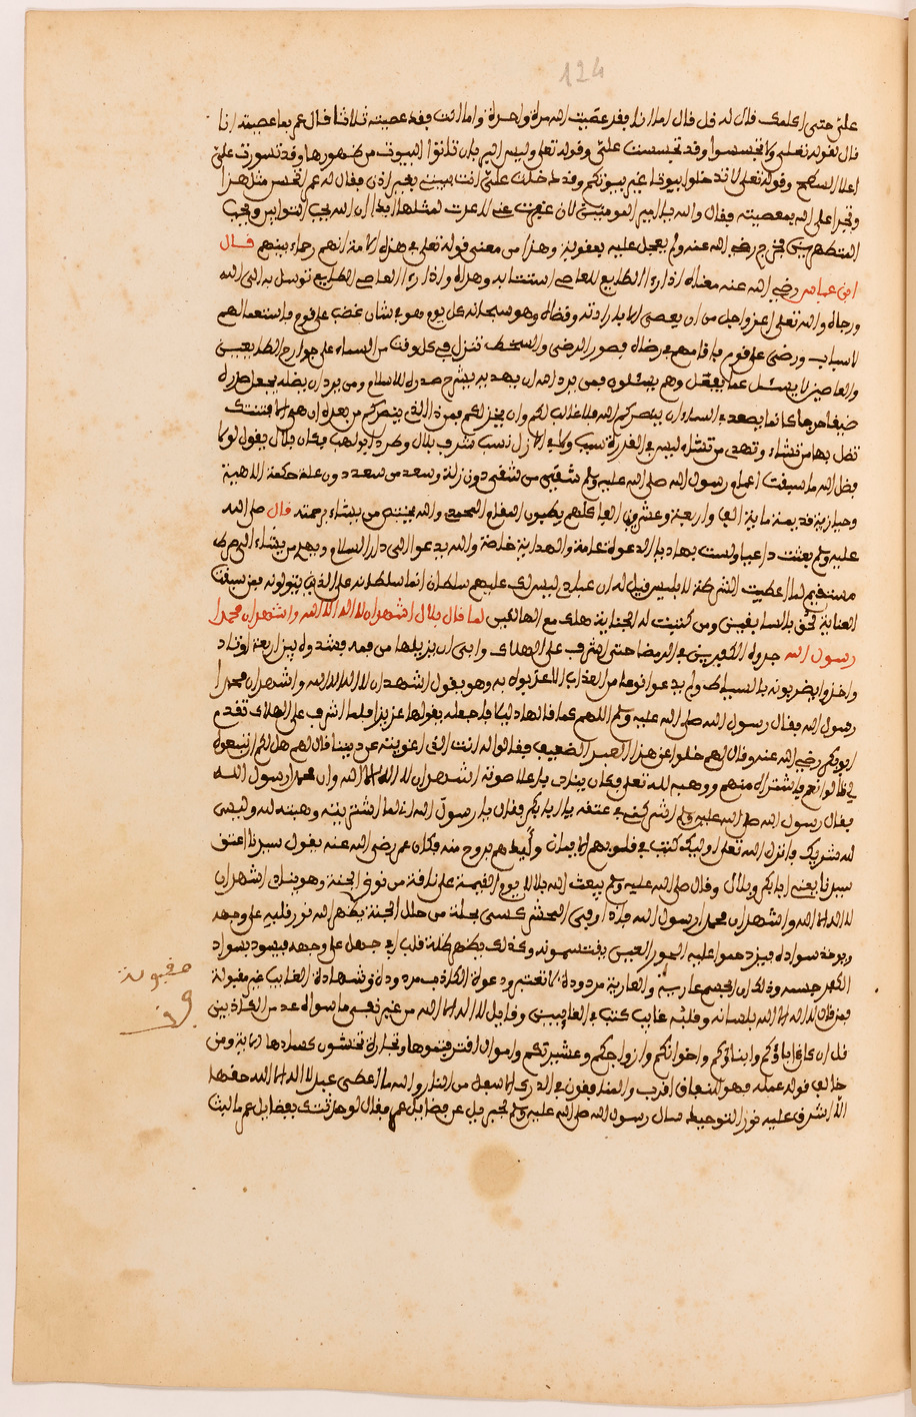 124
علي حتى اكلمك قال له قل قال اما انا فقد عصيت الله مرة واحدة واما انت فقد عصيته ثلاثا قال عمر بما عصيته انا
قال لقوله تعلى ولا تجسسوا وقد تجسست علي وقوله تعلى وليس البر بان تاتوا البيوت من ظهورها وقد تسورت علي
اعلا السطح وقوله تعلى لا تدخلوا بيوتا غير بيوتكم وقد دخلت علي انت بيتي بغير اذن فقال له عمر اتحسن مثل هذا
وتجرا على الله بمعصيته فقال والله يا امير المومنين لان عفوت عني لا عدت لمثلها ابدا ان الله يحب التوابين ويحب
المتطهرين فخرج رضي الله عنه ولم يعجل عليه بعقوبة وهذا من معنى قوله تعلى في هذه الامة انهم رحماء بينهم قال
ابن عباس رضي الله عنه معناه اذا رءا الطايع للعاصي استتابه وهداه واذا رءا العاصي الطايع توسل به الى الله
ورجاه والله تعلى اعز واجل من ان يعصى الا بارادته وقضائه وهو سبحانه كل يوم هو في شان غضب على قوم فاستعملهم
لاسباب ورضي على قوم فاقامهم في رضاه فصور الرضى والسخط تنزل في كل وقت من السماء على جوارح الطايعين
والعاصين لا يسئل عما يفعل وهم يسئلون فمن يرد الله ان يهديه يشرح صدره للاسلام ومن يرد ان يضله يجعل صدره
ضيقا حرجا كانما يصعد في السماء ان ينصركم الله فلا غالب لكم وان يخذلكم فمن ذا الذي ينصركم من بعده ان هي الا فتنتك
تضل بها من تشاء وتهدي من تشاء ليس في القدرة سبب ولا في الازل نسب شرف بلال وطرد ابو لهب فكان بلال يقول لولا
فضل الله ما سبقت اعمام رسول الله صلى الله عليه وسلم شقي من شقي دون زلة وسعد من سعد دون علة حكمة الاهية
قال صلى الله
عليه وسلم بعثت داعيا ولست بهاد فالدعوة عامة والهداية خاصة والله يدعوا الى دار السلام ويهد من يشاء الى صراط
مستقيم لما اعطيت الشرطة لابليس قيل له ان عبادي ليس لك عليهم سلطان انما سلطانه على الذين يتولونه فمن سبقت
العناية لحق بالسابقين ومن كتبت له الجناية هلك مع الهالكين لما قال بلال اشهد ان لا اله الا الله واشهد ان محمدا
رسول الله جردوه الكفرين في الرمضا حتى اشرف على الهلاك وابى ان يزيلها من فمه فشدوه بين اربعة اوتاد
واخذوا يضربونه بالسياط ولم يدعوا نوعا من العذاب الا عذبوه به وهو يقول اشهد ان لا اله الا الله واشهد ان محمدا
رسول الله فقال رسول الله صلى الله عليه وسلم اللهم كما قالها ذليلا فاجعله يقولها عزيزا فلما اشرف على الهلاك تقدم
ابو بكر رضي الله عنه وقال لهم خلوا عن هذا العبد الضعيف فقالوا له انت الذي اغويته عن ديننا قال لهم هل لكم ان تبيعوه
لي قالوا نعم فاشتراه منهم ووهبه لله تعلى فكان ينادي باعلا صوته اشهد ان لا اله الا الله وان محمدا رسول الله
فقال رسول الله صلى الله عليه وسلم اشركني في عتقه يا ابا بكر فقال يا رسول الله انما اشتريته وهبته لله وليس
لله شريك فانزل الله تعلى اوليك كتب في قلوبهم الايمان وايدهم بروح منه فكان عمر رضي الله عنه يقول سيدنا اعتق
سيدنا يعني ابا بكر وبلال وقال صلى الله عليه وسلم يبعث الله بلالا يوم القيمة على ناقة من نوق الجنة وهو ينادي اشهد ان
لا اله الا الله واشهد ان محمدا رسول الله فاذا وافى المحشر كسي بحلة من حلل الجنة يظهر الله نور قلبه على وجهه
ويوخذ سواده فيزدحموا عليه الحور العين وكذلك يظهر ظلمة قلب ابي جهل على وجهه فيسود بسواد
الكفر جسمه وذلك ان الجسم عارية والعارية مردودة لا تعتبر ودعوة الكاذب مردودة وشهادة الغايب غير مقبولة
فمن قال لا اله الا الله بلسانه وقلبه غايب كتب في الغايبين وقايل لا اله الا الله من غير نفي ما سواه عد من الكاذبين
قل ان كان اباؤكم وابناؤكم واخوانكم وازواجكم وعشيرتكم واموال اقترفتموها وتجارة تخشون كسادها الاية ومن
خالف قوله عمله فهو للنفاق اقرب والمنافقون في الدرك الاسفل من النار والله ما اعطى عبد لا اله الا الله حقها
الا اشرق عليه نور التوحيد سال رسول الله صلى الله عليه وسلم جبريل عن فضايل عمر فقال لو حدثتك بفضايل عمر ما لبث
مقبولة